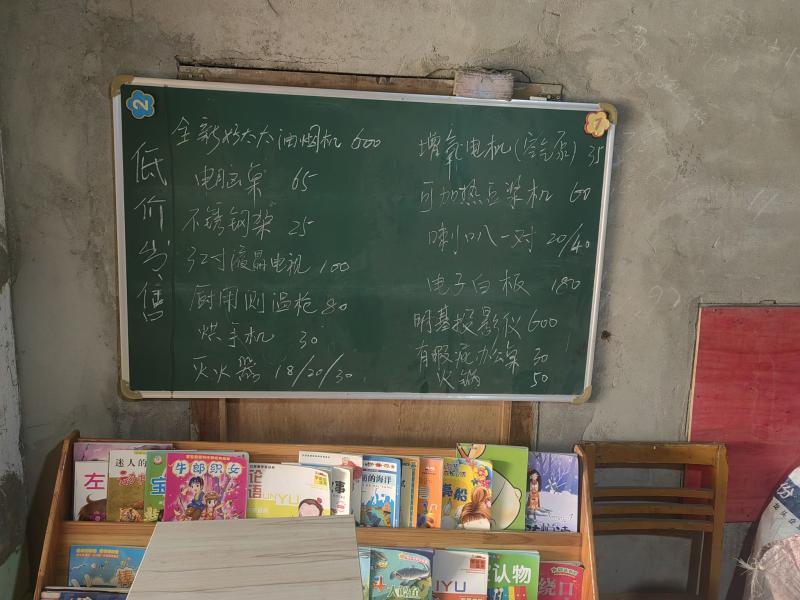 2
1
低价出售
全新好太太油烟机 600
电脑桌 65
不锈钢架 25
32寸液晶电视 100
厨用测温枪 80
烘手机 30
灭火器 18/20/30
增氧电机(空气泵) 35
可加热豆浆机 60
喇叭一对 20/40
电子白板 180
明基投影仪 600
有瑕疵办公桌 30
火锅 50
左
迷人的
宝
牛郎织女
论语
LUNYU
事
的海洋
亮船
认物
绕口
份